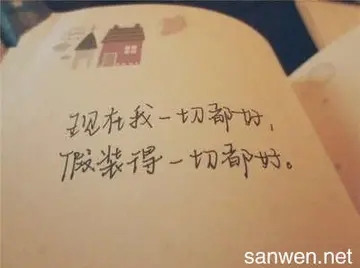 现在我一切都好，
假装得一切都好。
sanwen.net